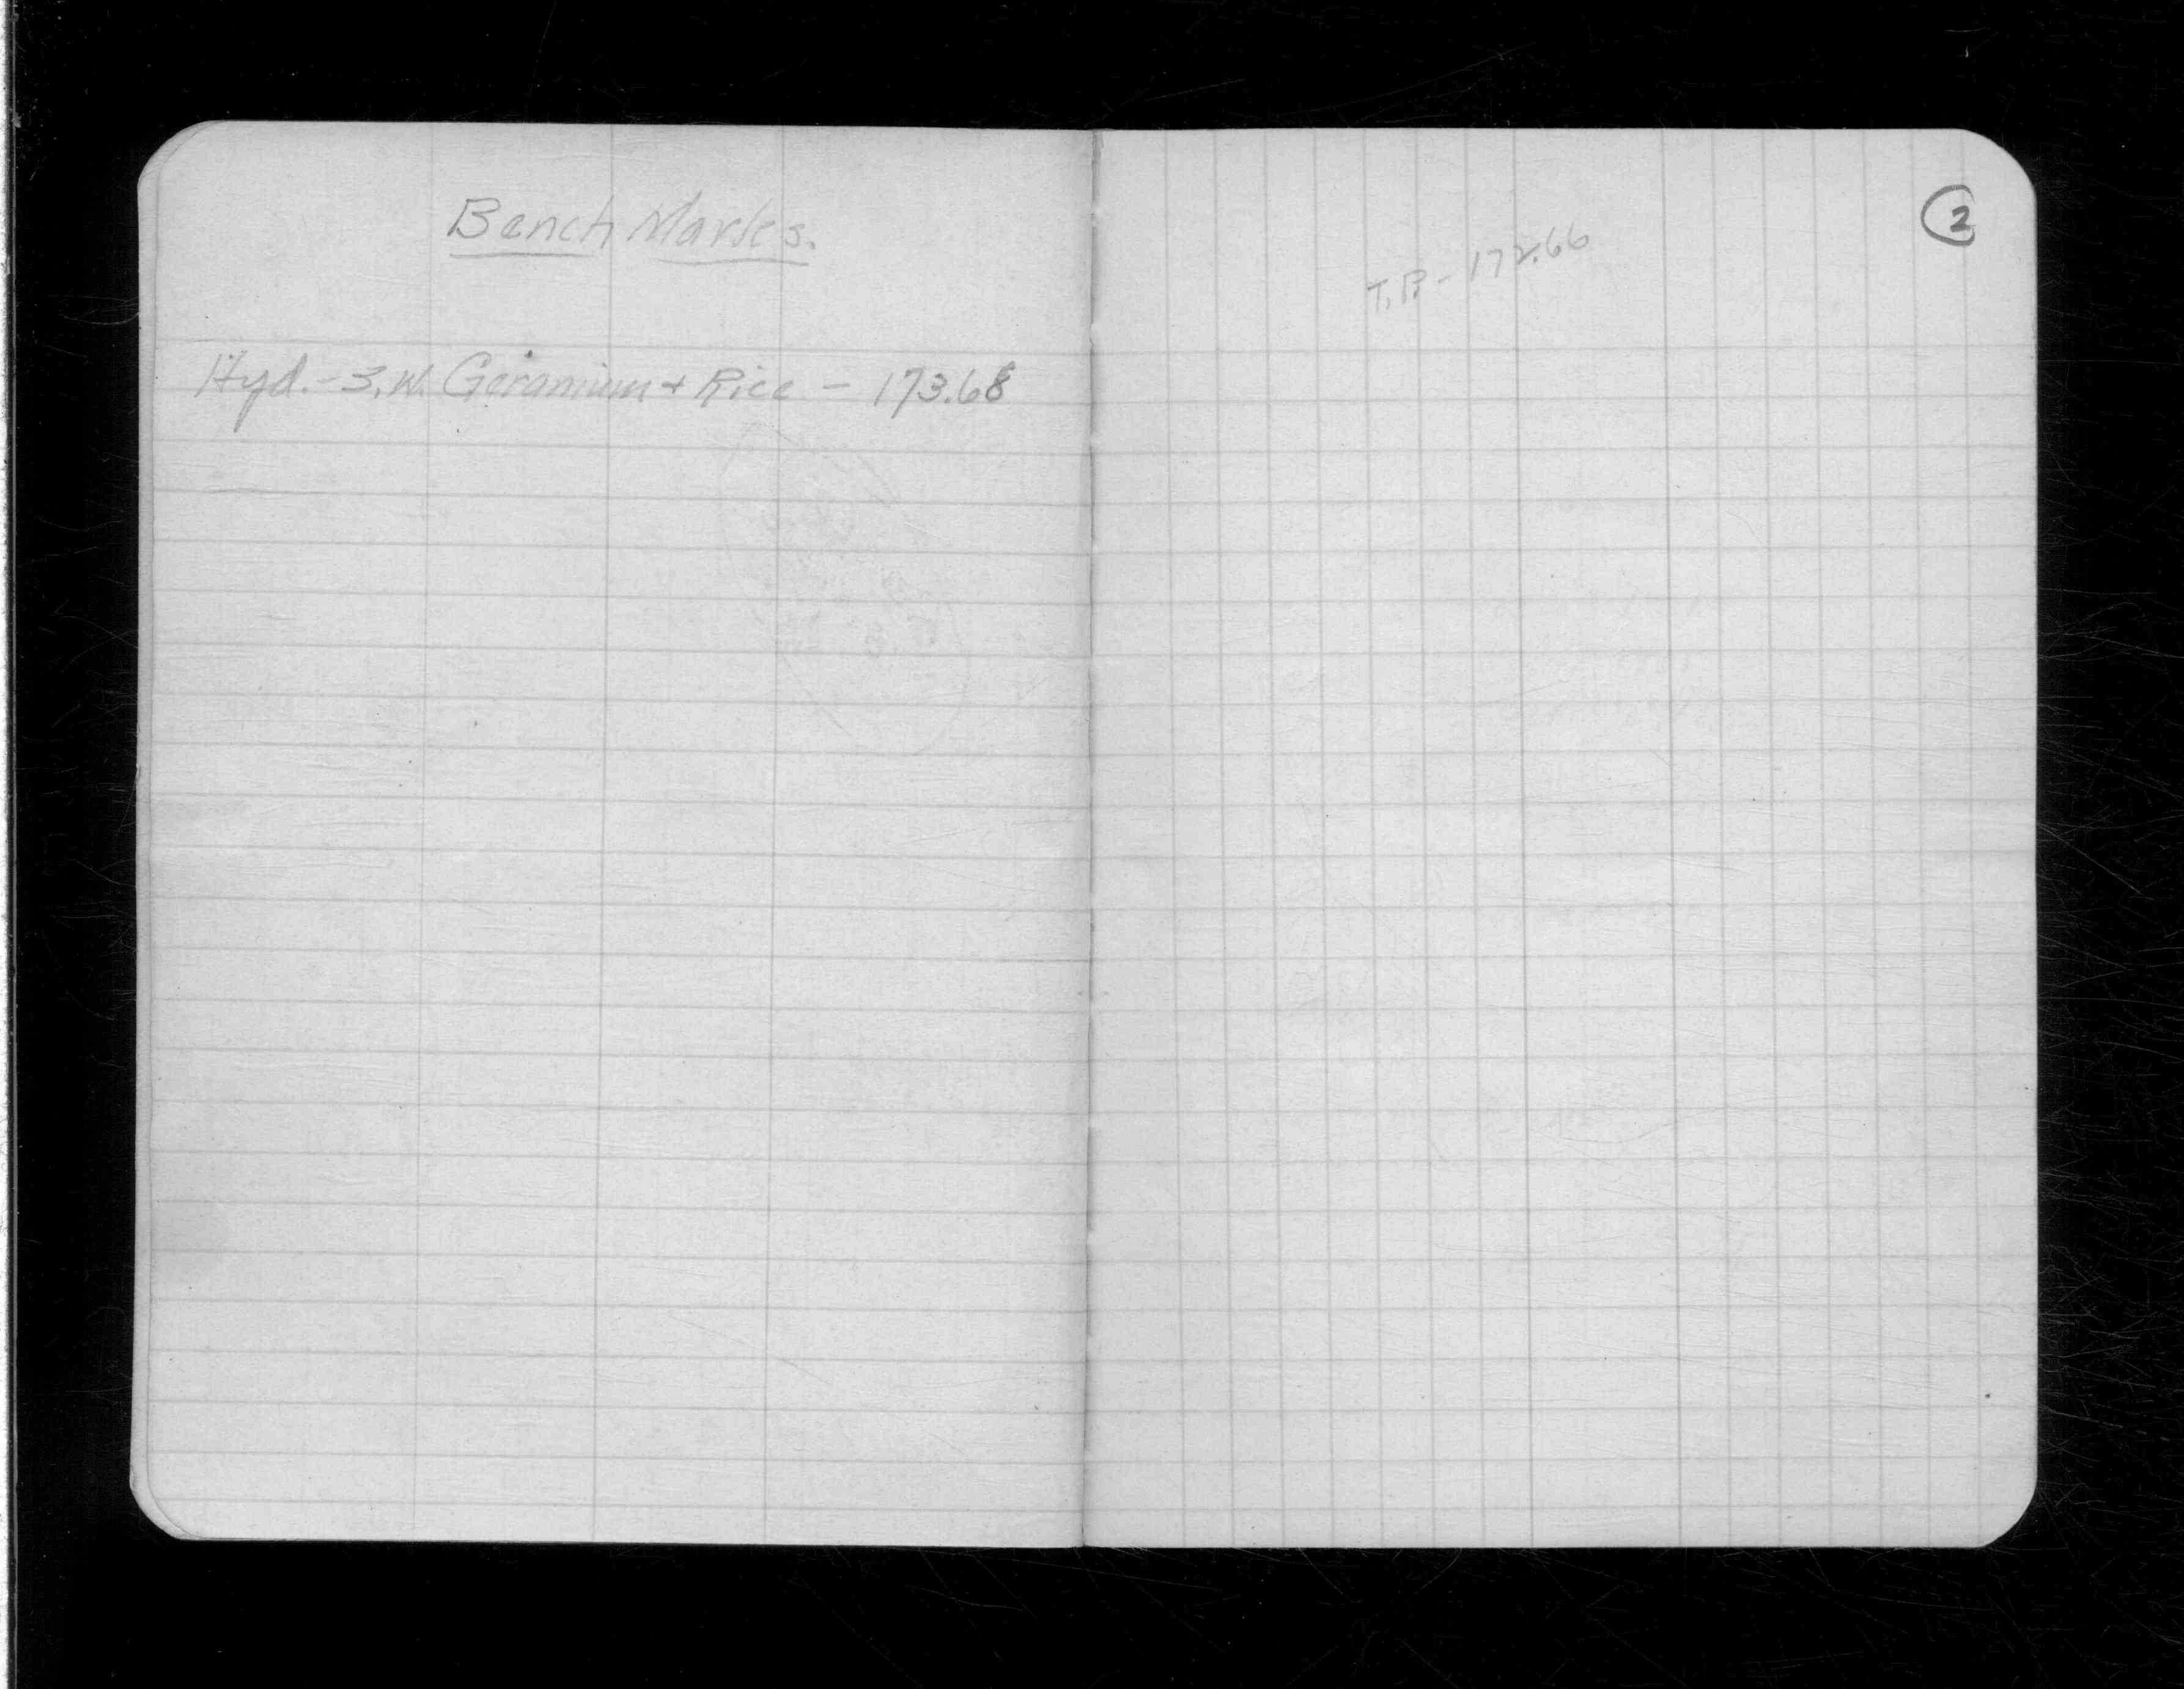 Bench Marks.
Hyd. - S.W. Geranium + Rice - 173.68
2
T.P. - 172.66